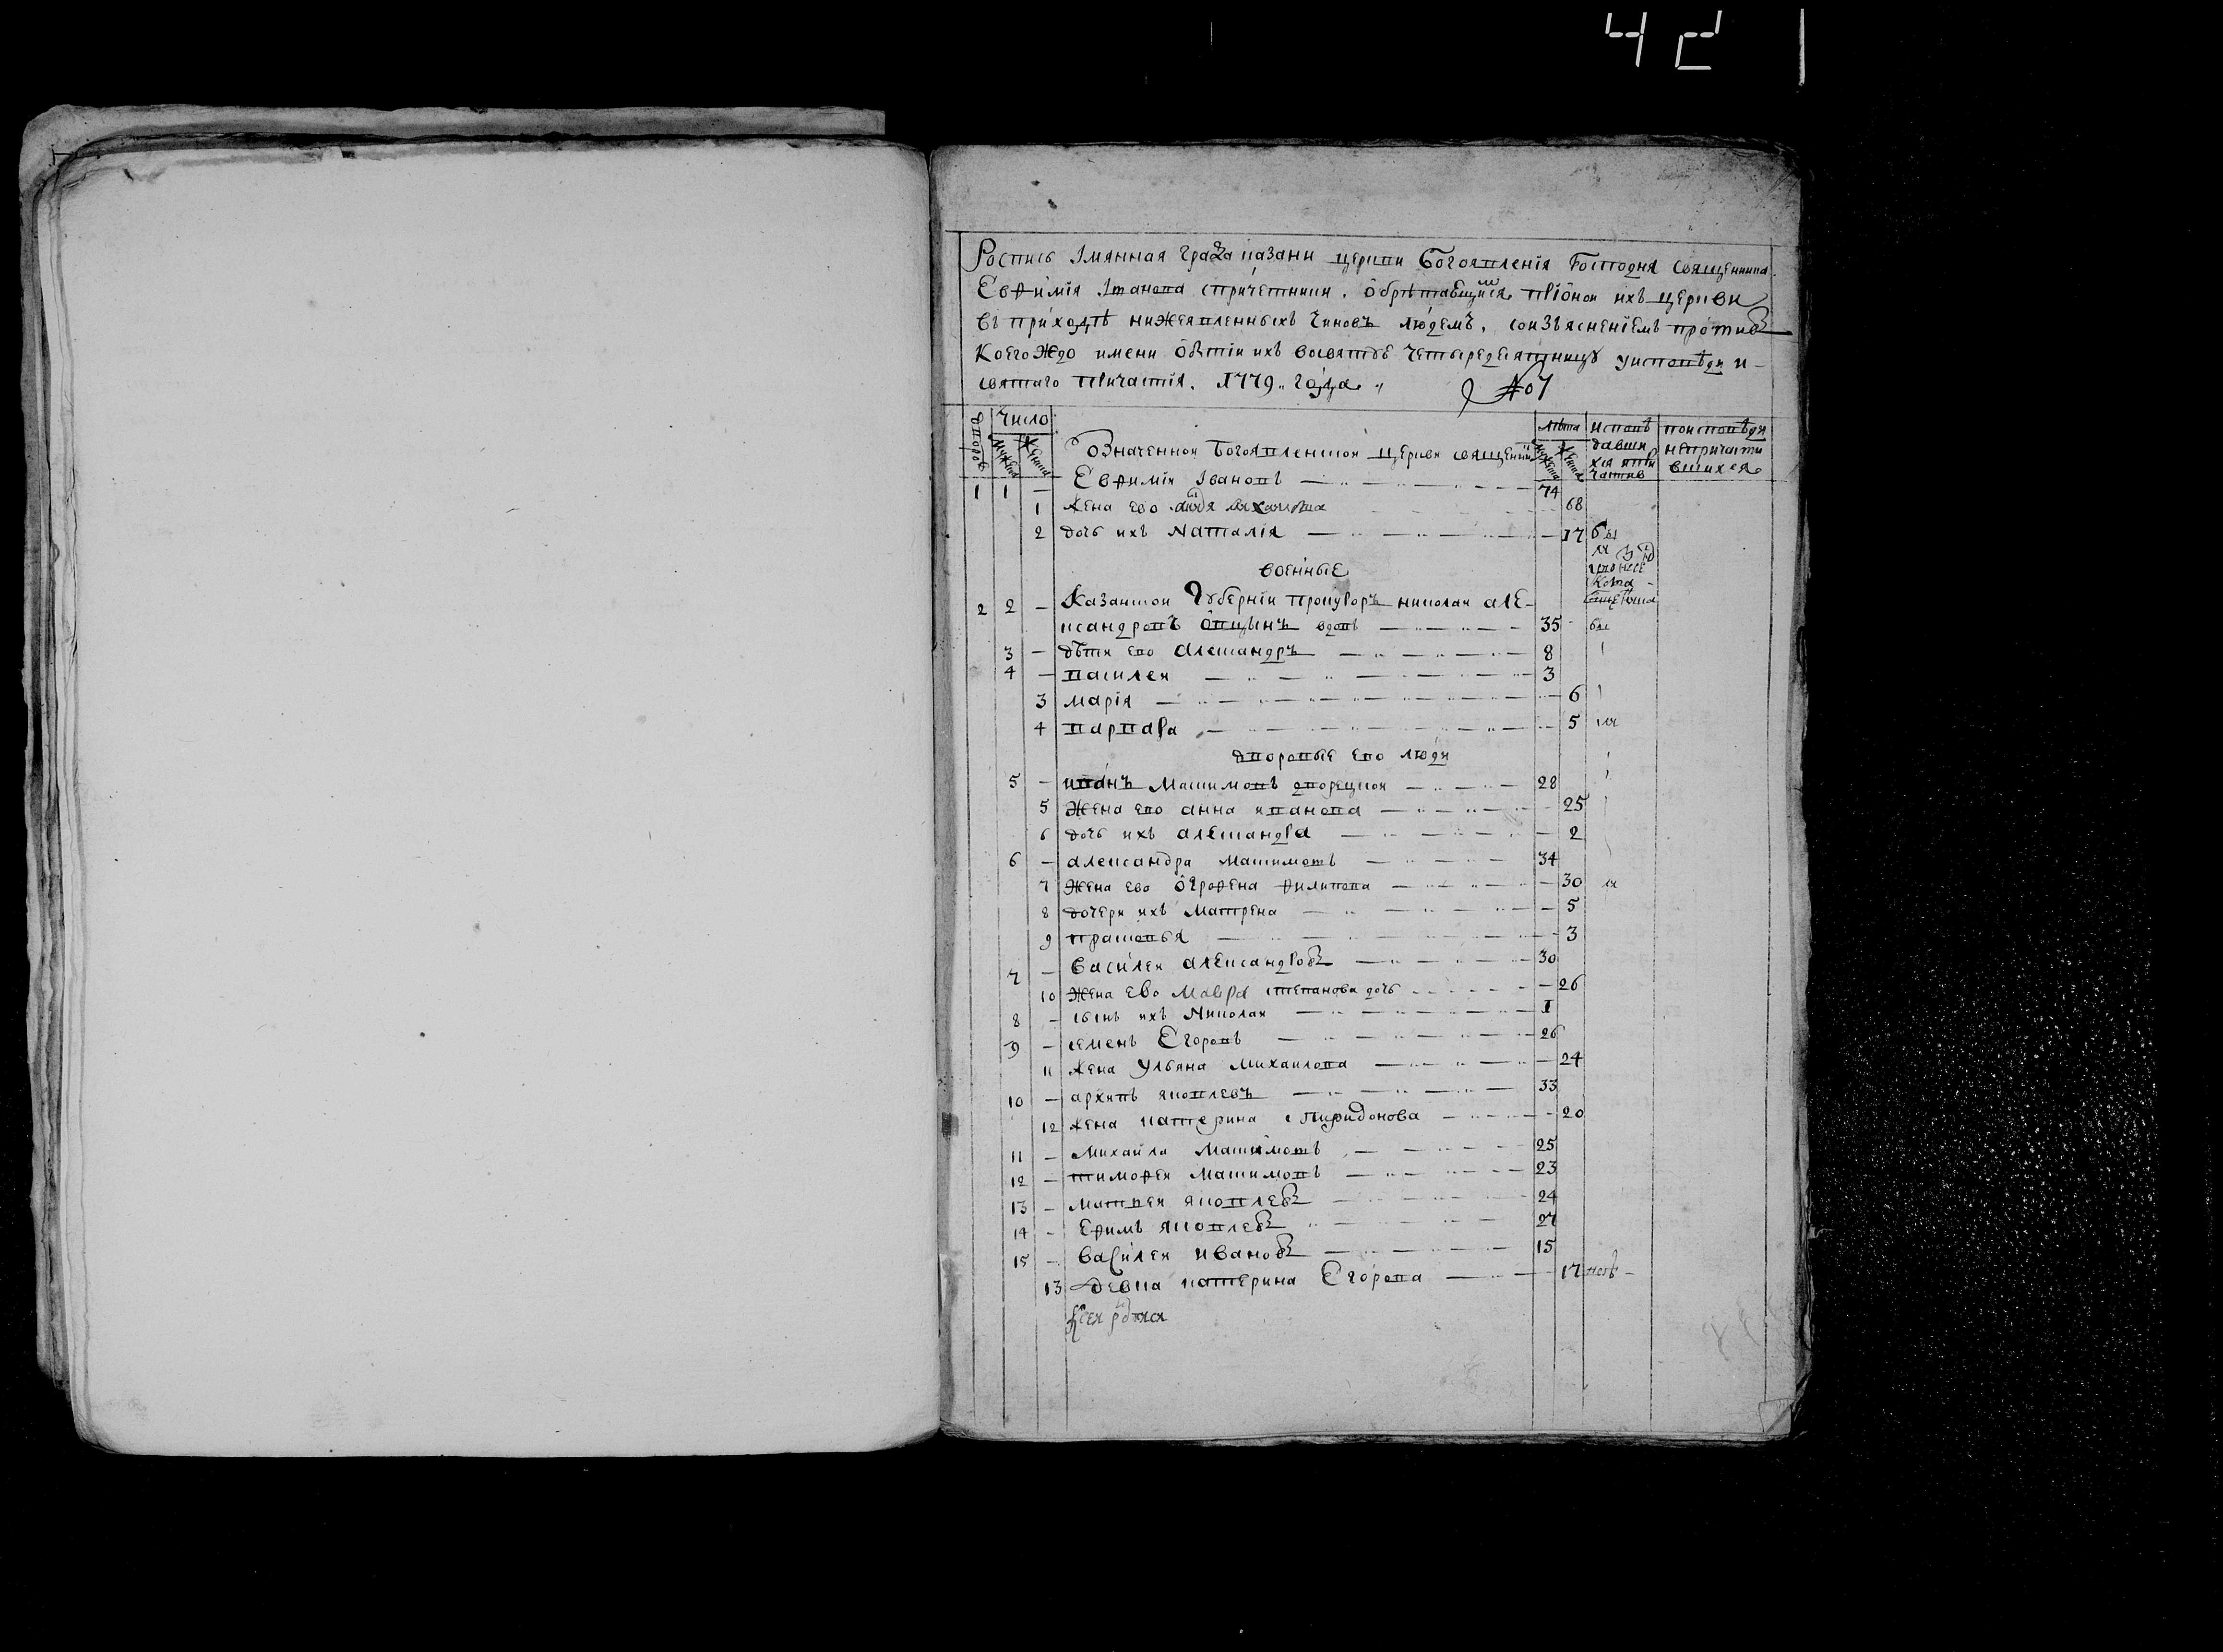 42
Роспись Імянная града казани церкви Богоявленія Господня священника
Евфимія Іванова спричетники. обретающимся прионой ихъ церкви
въ приходѣ нижеявленныхъ чиновъ людемъ. соизъясненіемъ противъ
коегождо имени о бытіи ихъ восвятую четыредесятницу уисповѣди и
святаго причастія. 1779 .. года
дворовъ Число Лѣта исповѣ поисповѣди
Мужеска Женска Мужеска Женска давши непричасти
хся и при вшихся
частив
Означенной Богоявленской церкви священникъ
1 1 — Евфимій Івановъ 74
1 Жена ево 68
2 дочь ихъ Наталія 17 бы
военные
2 2 — Казанской Губерніи прокуроръ николай але-
ксандровъ вдовъ 35 бы
3 — дѣти ево Александръ 8
4 — василей 3
3 марія 6
4 варвара 5 ли
дворовые ево люди
5 — иванъ Максимовъ дворецкой 28
5 Жена ево анна иванова 25
6 дочь ихъ александра 2
6 — александра Максимовъ 34
7 Жена ево огрофена филипова 30 ли
8 дочери ихъ Матрена 5
9 прасковья 3
7 — василей александровъ 30
10 Жена ево Мавра степанова дочь 26
8 — сынъ ихъ Николай 1
9 — семенъ Егоровъ 26
11 Жена Ульяна Михайлова 24
10 — архипъ яковлевъ 33
12 Жена катерина спиридонова 20
11 — Михайла Максимовъ 25
12 — тимофей Максимовъ 23
13 — матвей яковлевъ 24
14 — Ефимъ яковлевъ 27
15 — василей ивановъ 15
13 девка катерина Егорова 17